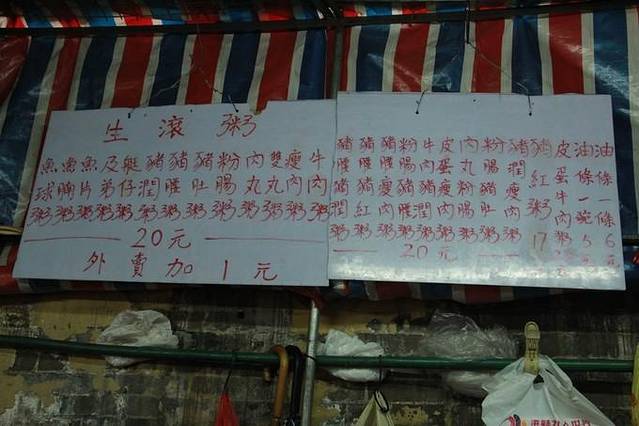 生滾粥
魚球粥
魚腩粥
魚片粥
及弟粥
艇仔粥
豬潤粥
豬腰粥
豬肚粥
粉腸粥
肉丸粥
雙丸粥
瘦肉粥
牛肉粥
20元
外賣加1元
豬腰豬潤粥
豬腰豬紅粥
豬腰瘦肉粥
粉腸豬腰粥
牛肉豬潤粥
皮蛋瘦肉粥
肉丸粉腸粥
粉腸豬肚粥
豬潤瘦肉粥
20元
豬紅粥17
皮蛋牛肉粥
油條一 5元
油條一條6元